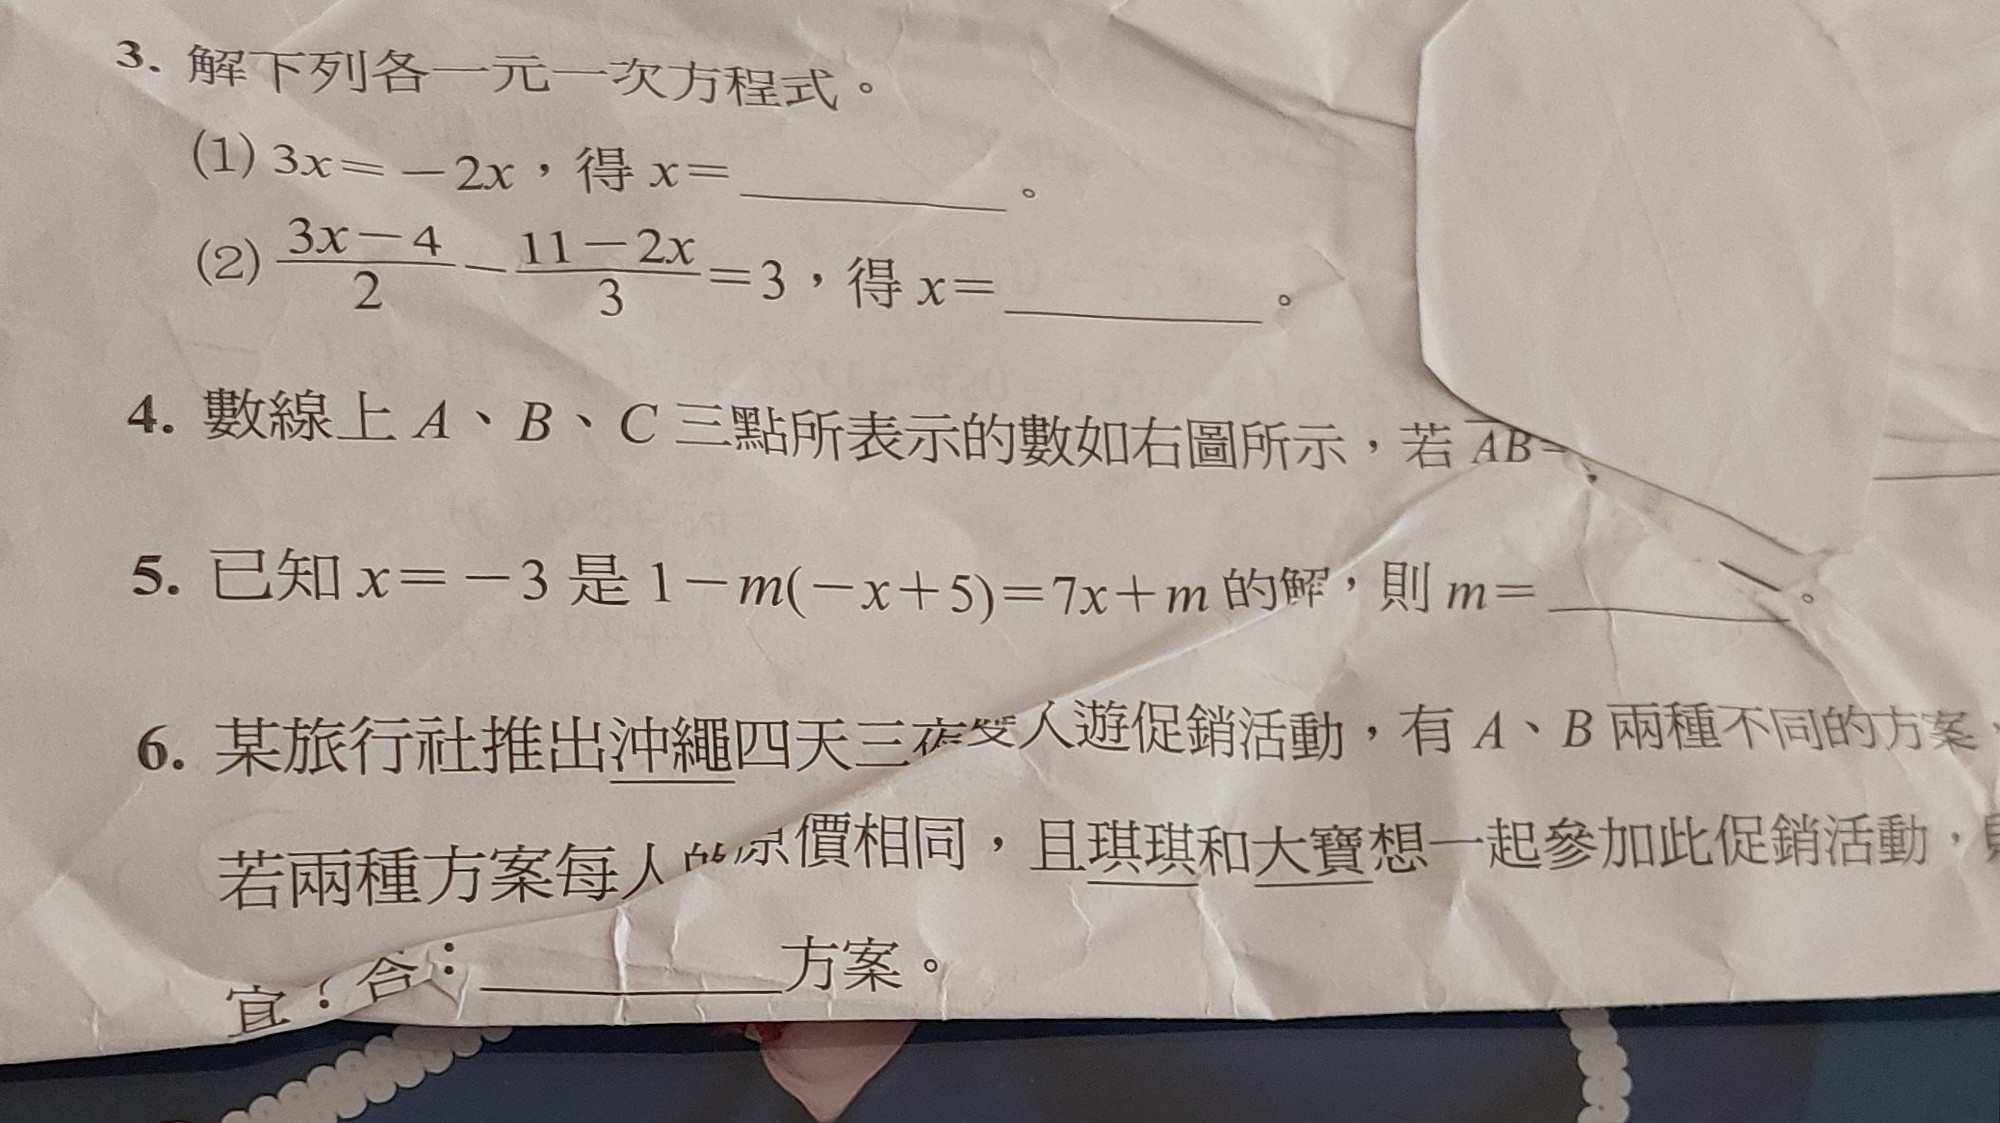 3. 解下列各一元一次方程式。
(1) 3x＝－2x，得 x＝＿＿＿＿。
(2) (3x－4)/2－(11－2x)/3＝3，得 x＝＿＿＿＿。
4. 數線上 A、B、C 三點所表示的數如右圖所示，若 AB
5. 已知 x＝－3 是 1－m(－x＋5)＝7x＋m 的解，則 m＝＿＿＿＿。
6. 某旅行社推出沖繩四天三夜雙人遊促銷活動，有 A、B 兩種不同的方案，
若兩種方案每人的原價相同，且琪琪和大寶想一起參加此促銷活動，
宜？答：＿＿＿＿方案。